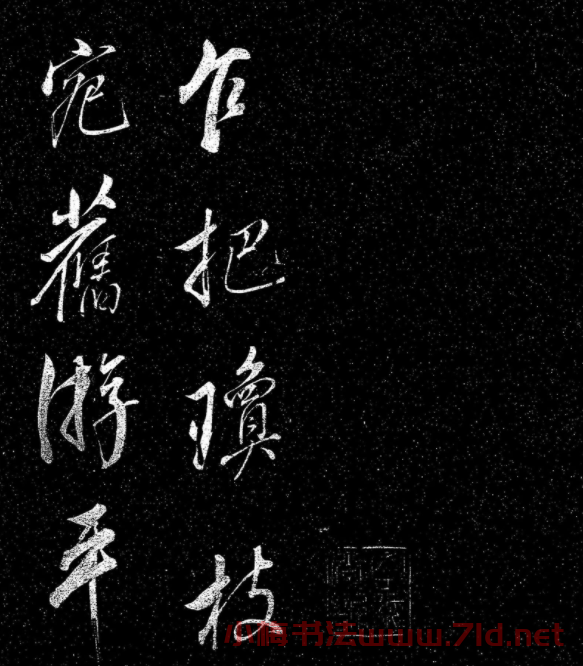 乍把瓊枝
宛舊游平
小梅书法www.7ld.net